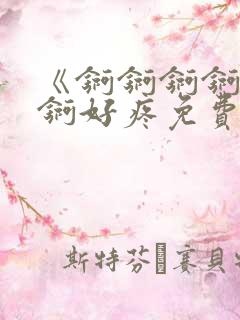 《锕锕锕锕
锕好疼免费
斯特芬·赛贝